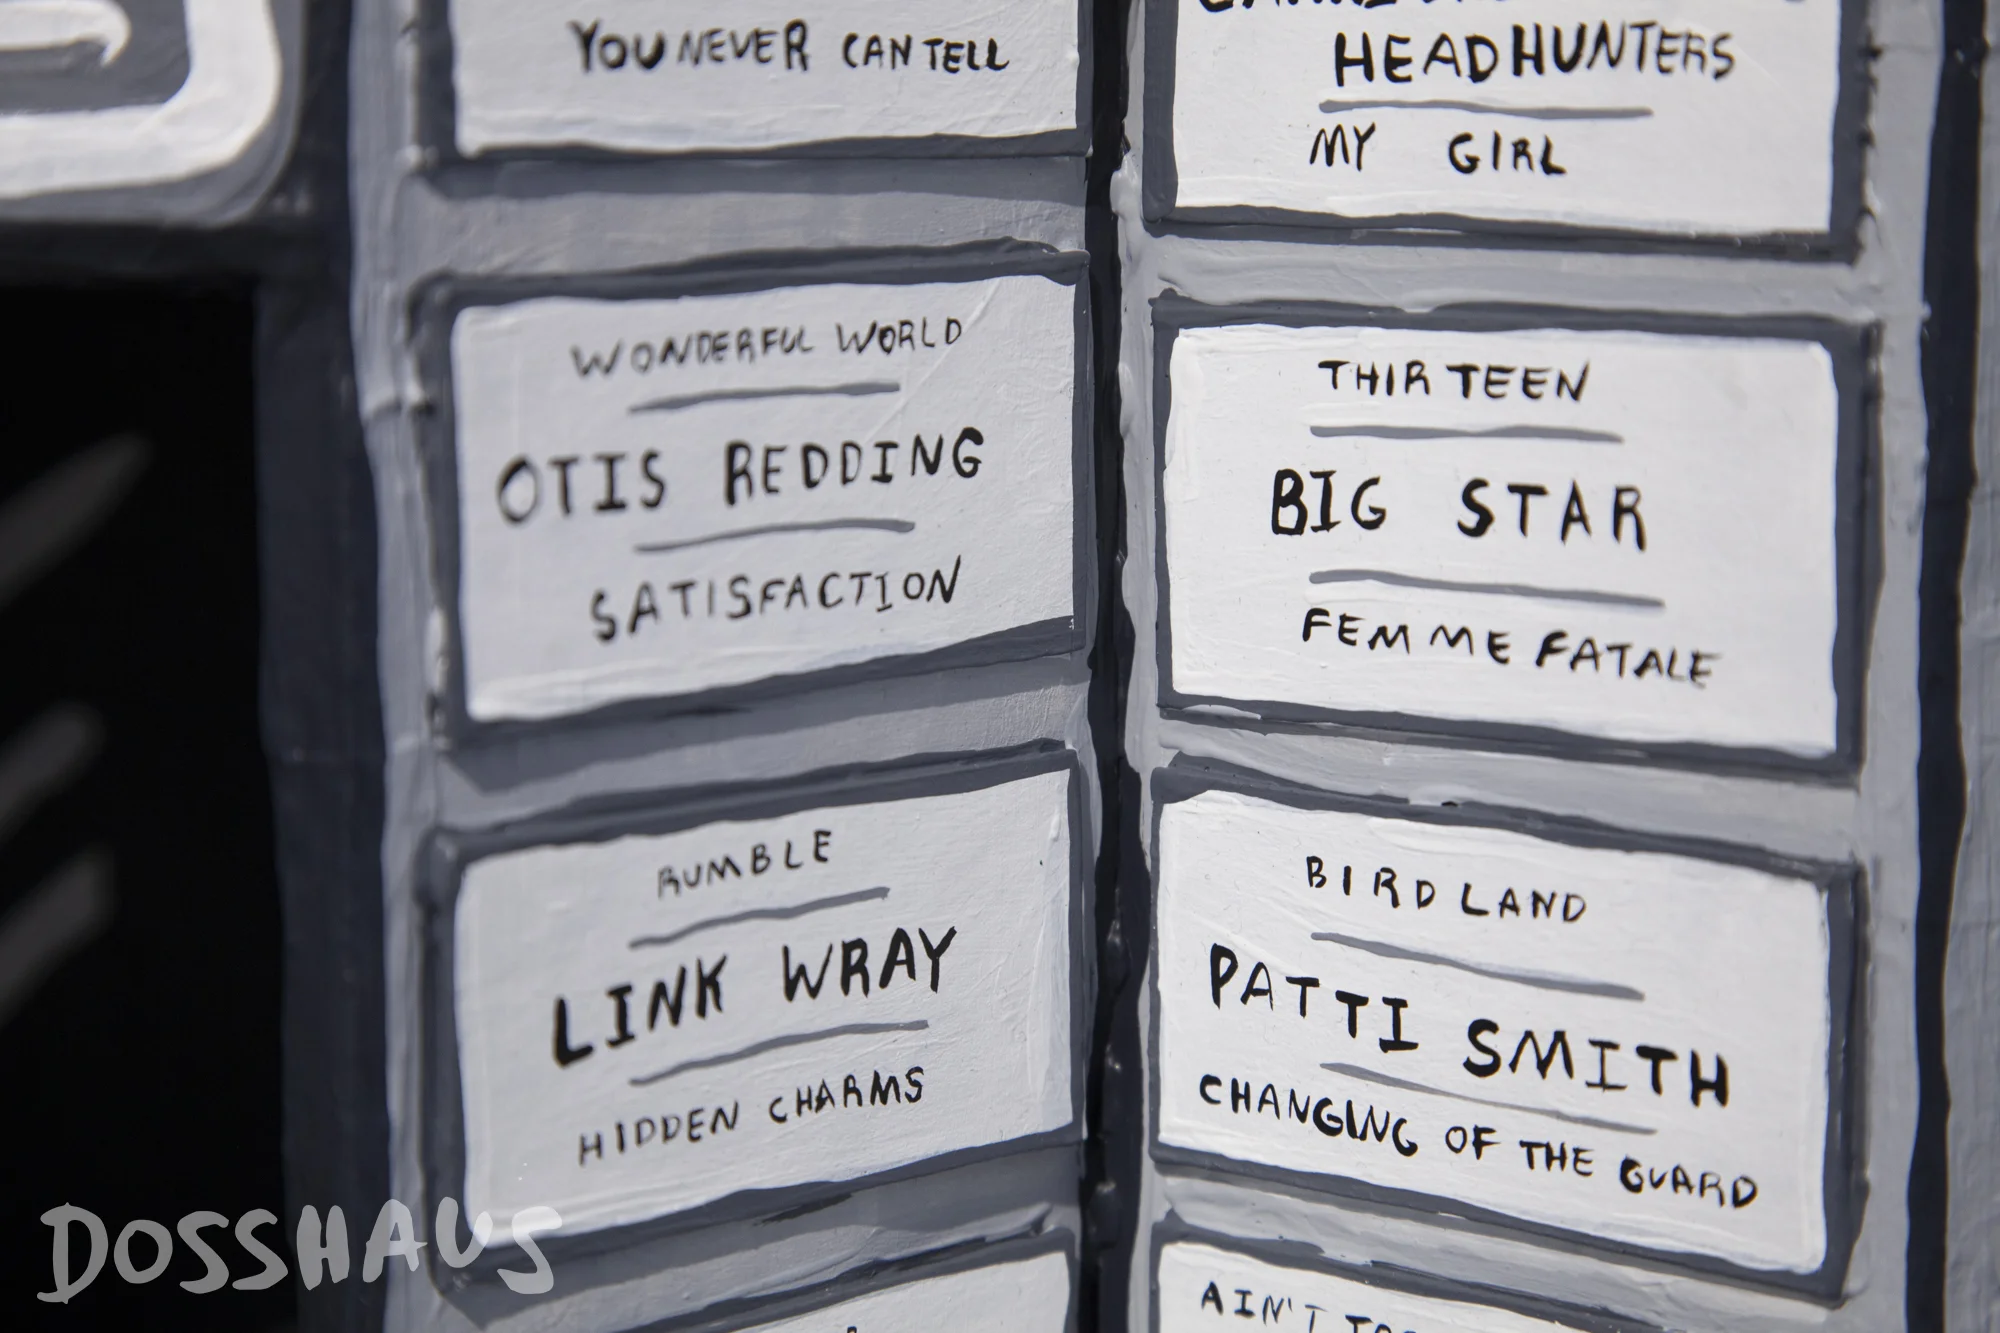 YOU NEVER CAN TELL
HEADHUNTERS
MY GIRL
WONDERFUL WORLD
OTIS REDDING
SATISFACTION
THIRTEEN
BIG STAR
FEMME FATALE
RUMBLE
LINK WRAY
HIDDEN CHARMS
BIRDLAND
PATTI SMITH
CHANGING OF THE GUARD
AIN'T
DOSSHAUS